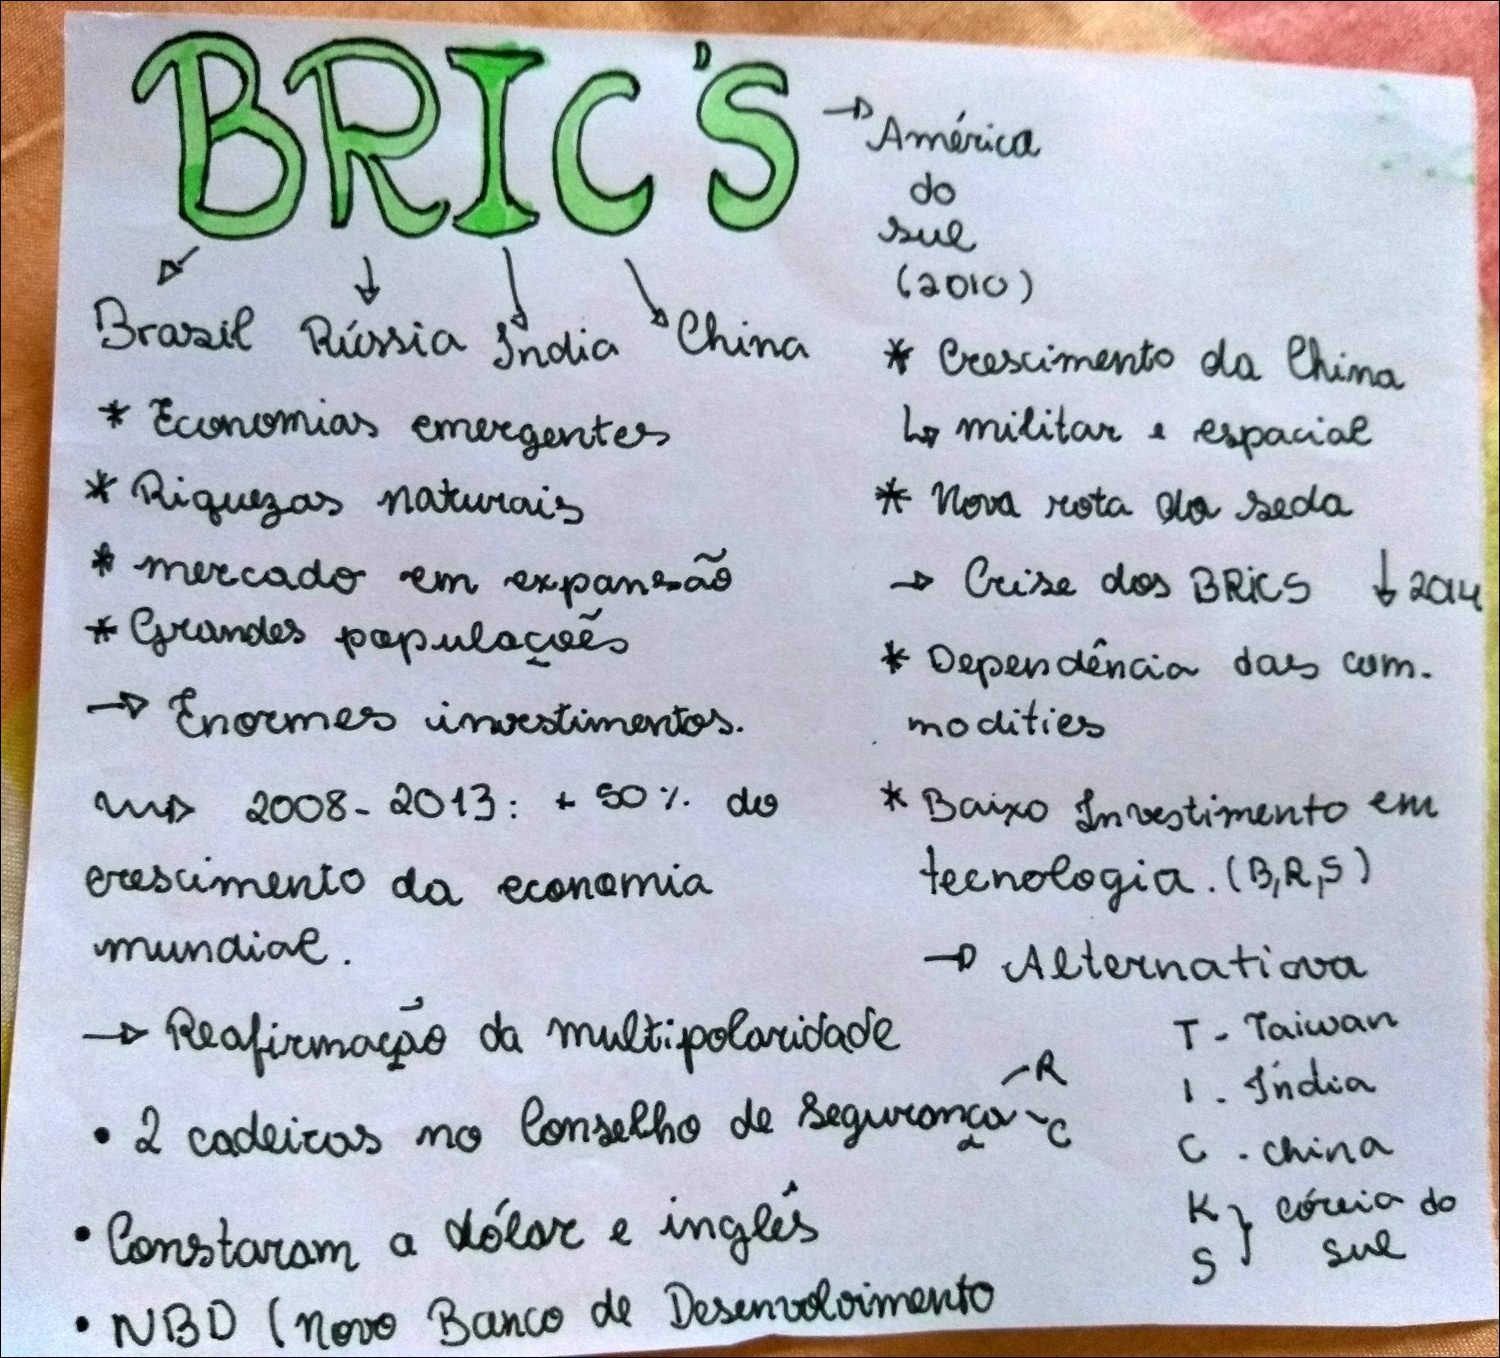 BRIC'S
Brasil Rússia Índia China
* Economias emergentes
* Riquezas naturais
* mercado em expansão
* Grandes populações
→ Enormes investimentos.
⇝ 2008-2013: + 50% do
crescimento da economia
mundial.
→ Reafirmação da multipolaridade
• 2 cadeiras no Conselho de Segurança R
C
• Constaram a dólar e inglês
• NBD (Novo Banco de Desenvolvimento
→ América
do
sul
(2010)
* Crescimento da China
↳ militar e espacial
* Nova rota da seda
→ Crise dos BRICS ↓ 2014
* Dependência das com-
modities
* Baixo Investimento em
tecnologia. (B,R,S)
→ Alternativa
T - Taiwan
I - Índia
C - China
K } córeia do
S sul